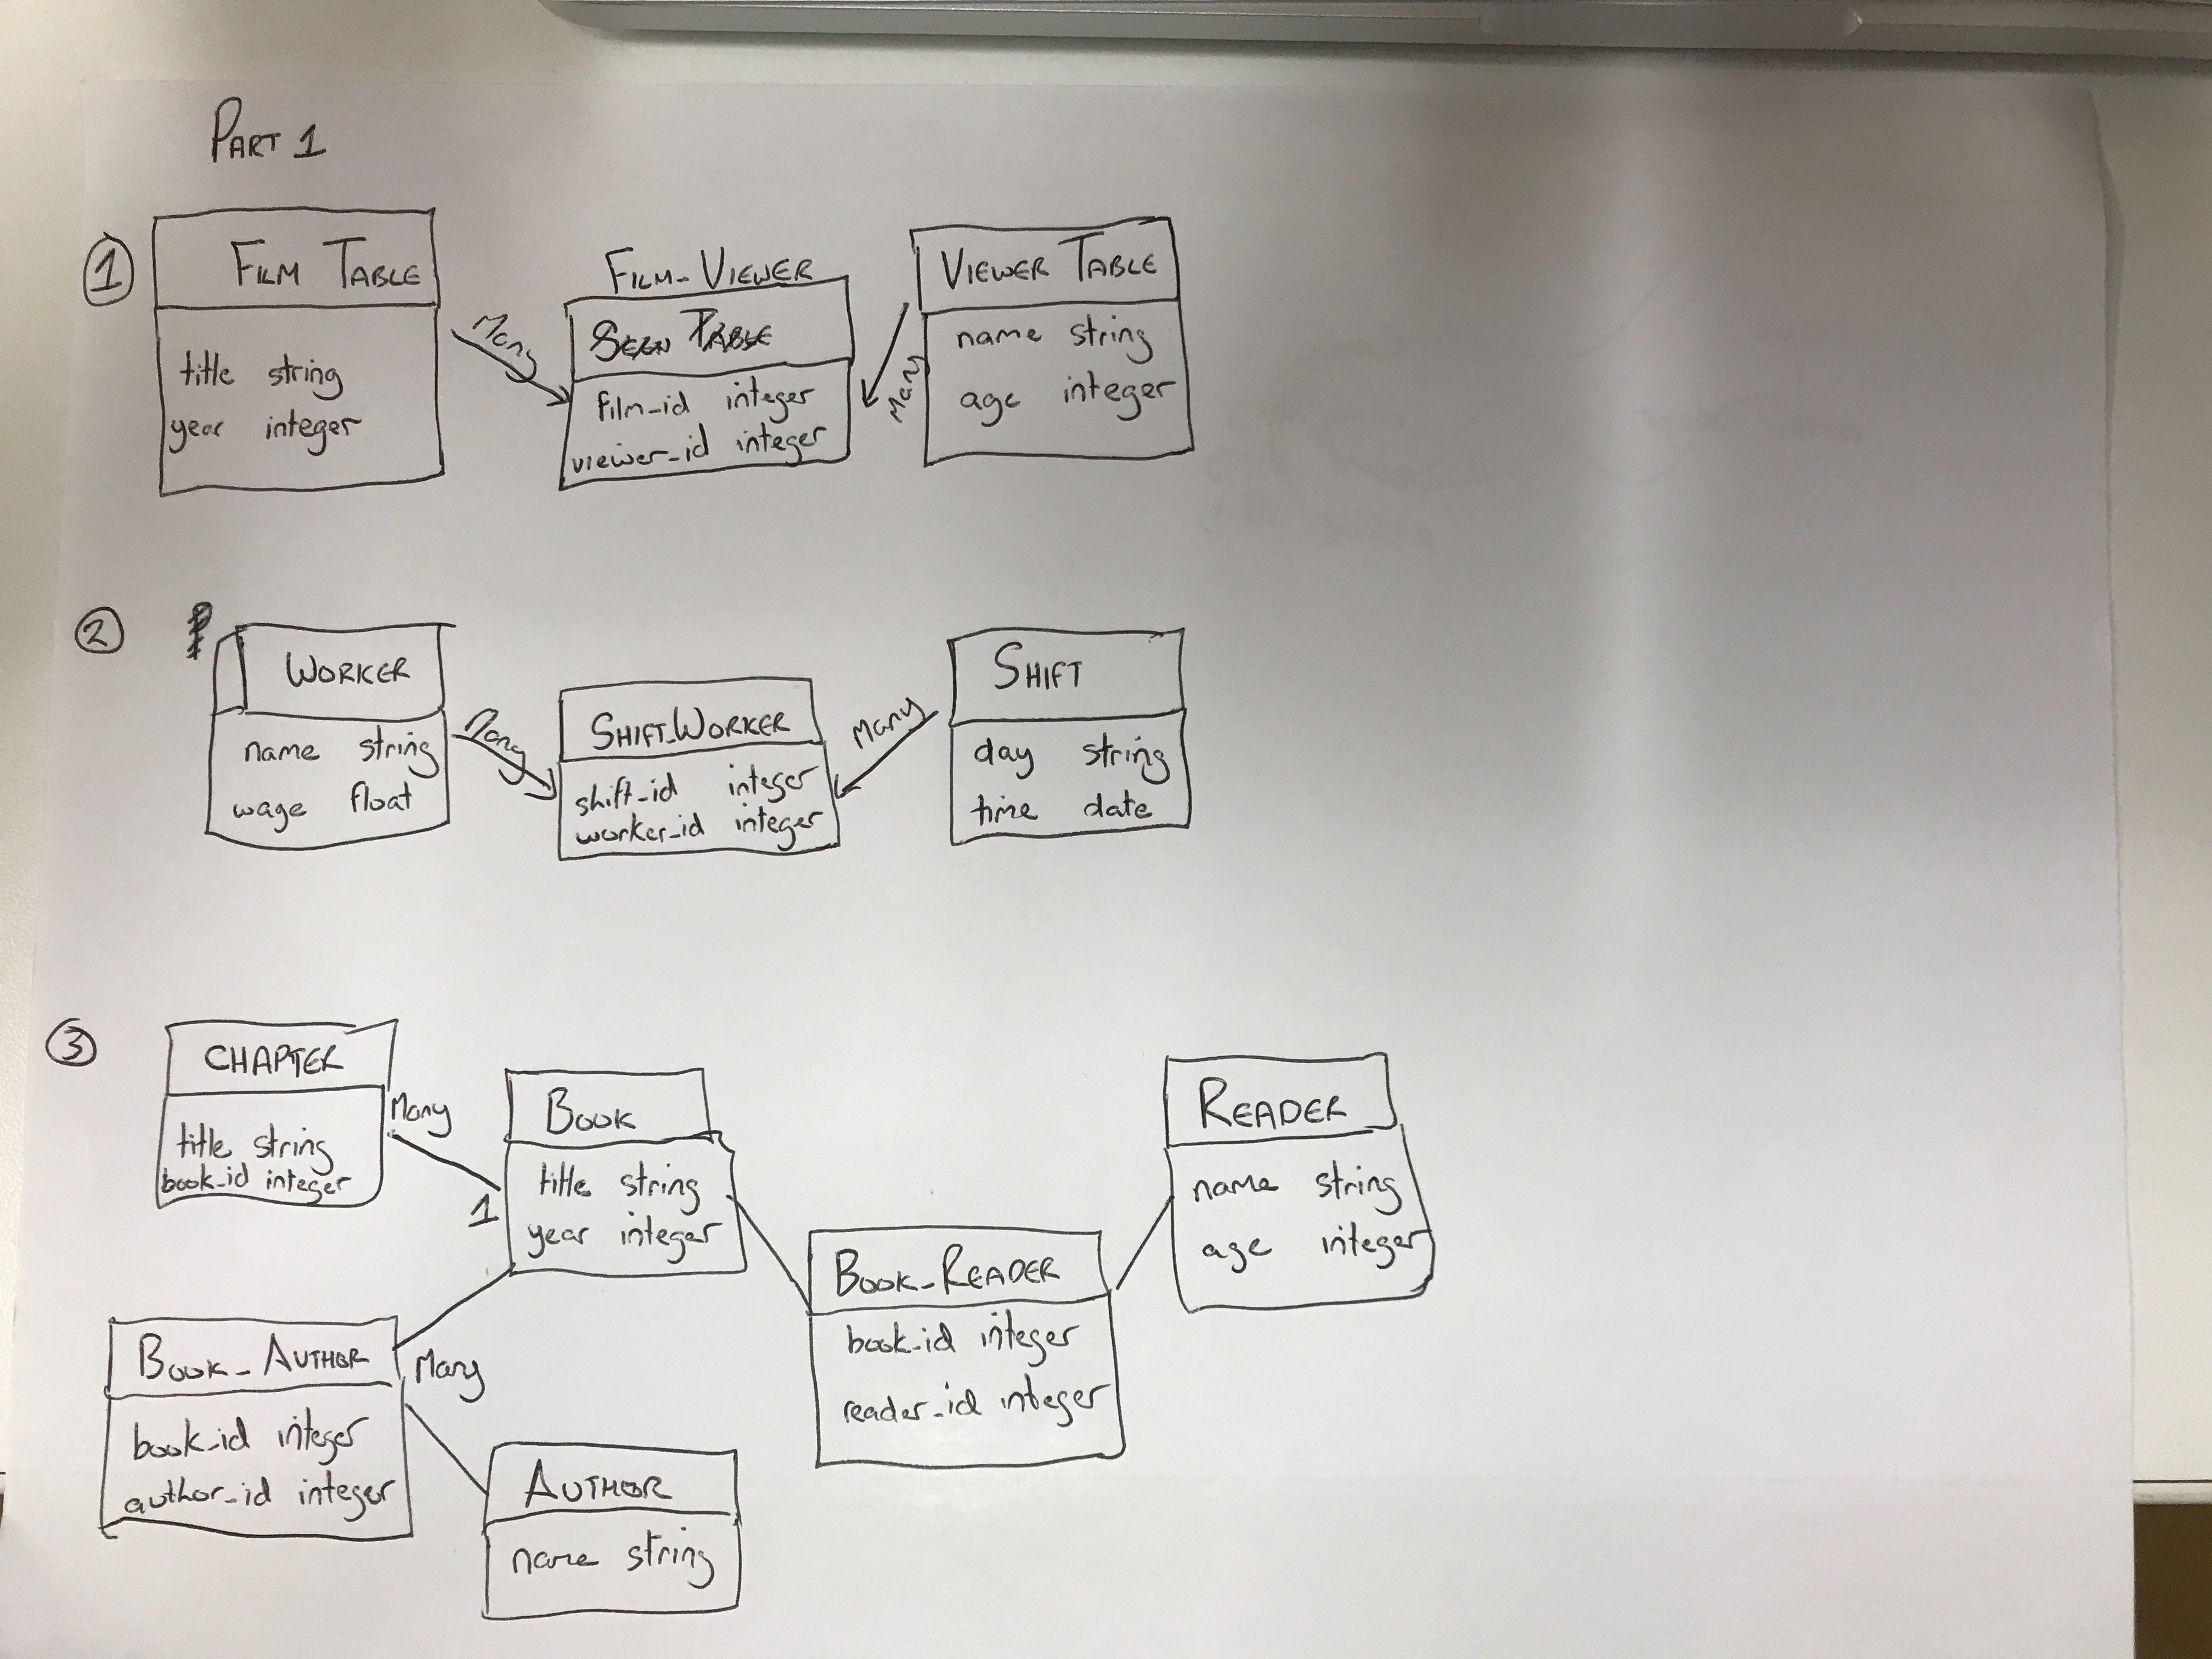 PART 1
1
FILM TABLE
title string
year integer
Many
FILM-VIEWER
SEEN TABLE
film_id integer
viewer_id integer
Many
VIEWER TABLE
name string
age integer
2
WORKER
name string
wage float
Many
SHIFT_WORKER
shift_id integer
worker_id integer
Many
SHIFT
day string
time date
3
CHAPTER
title string
book_id integer
Many
1
BOOK
title string
year integer
READER
name string
age integer
BOOK_READER
book_id integer
reader_id integer
BOOK_AUTHOR
book_id integer
author_id integer
Many
AUTHOR
name string